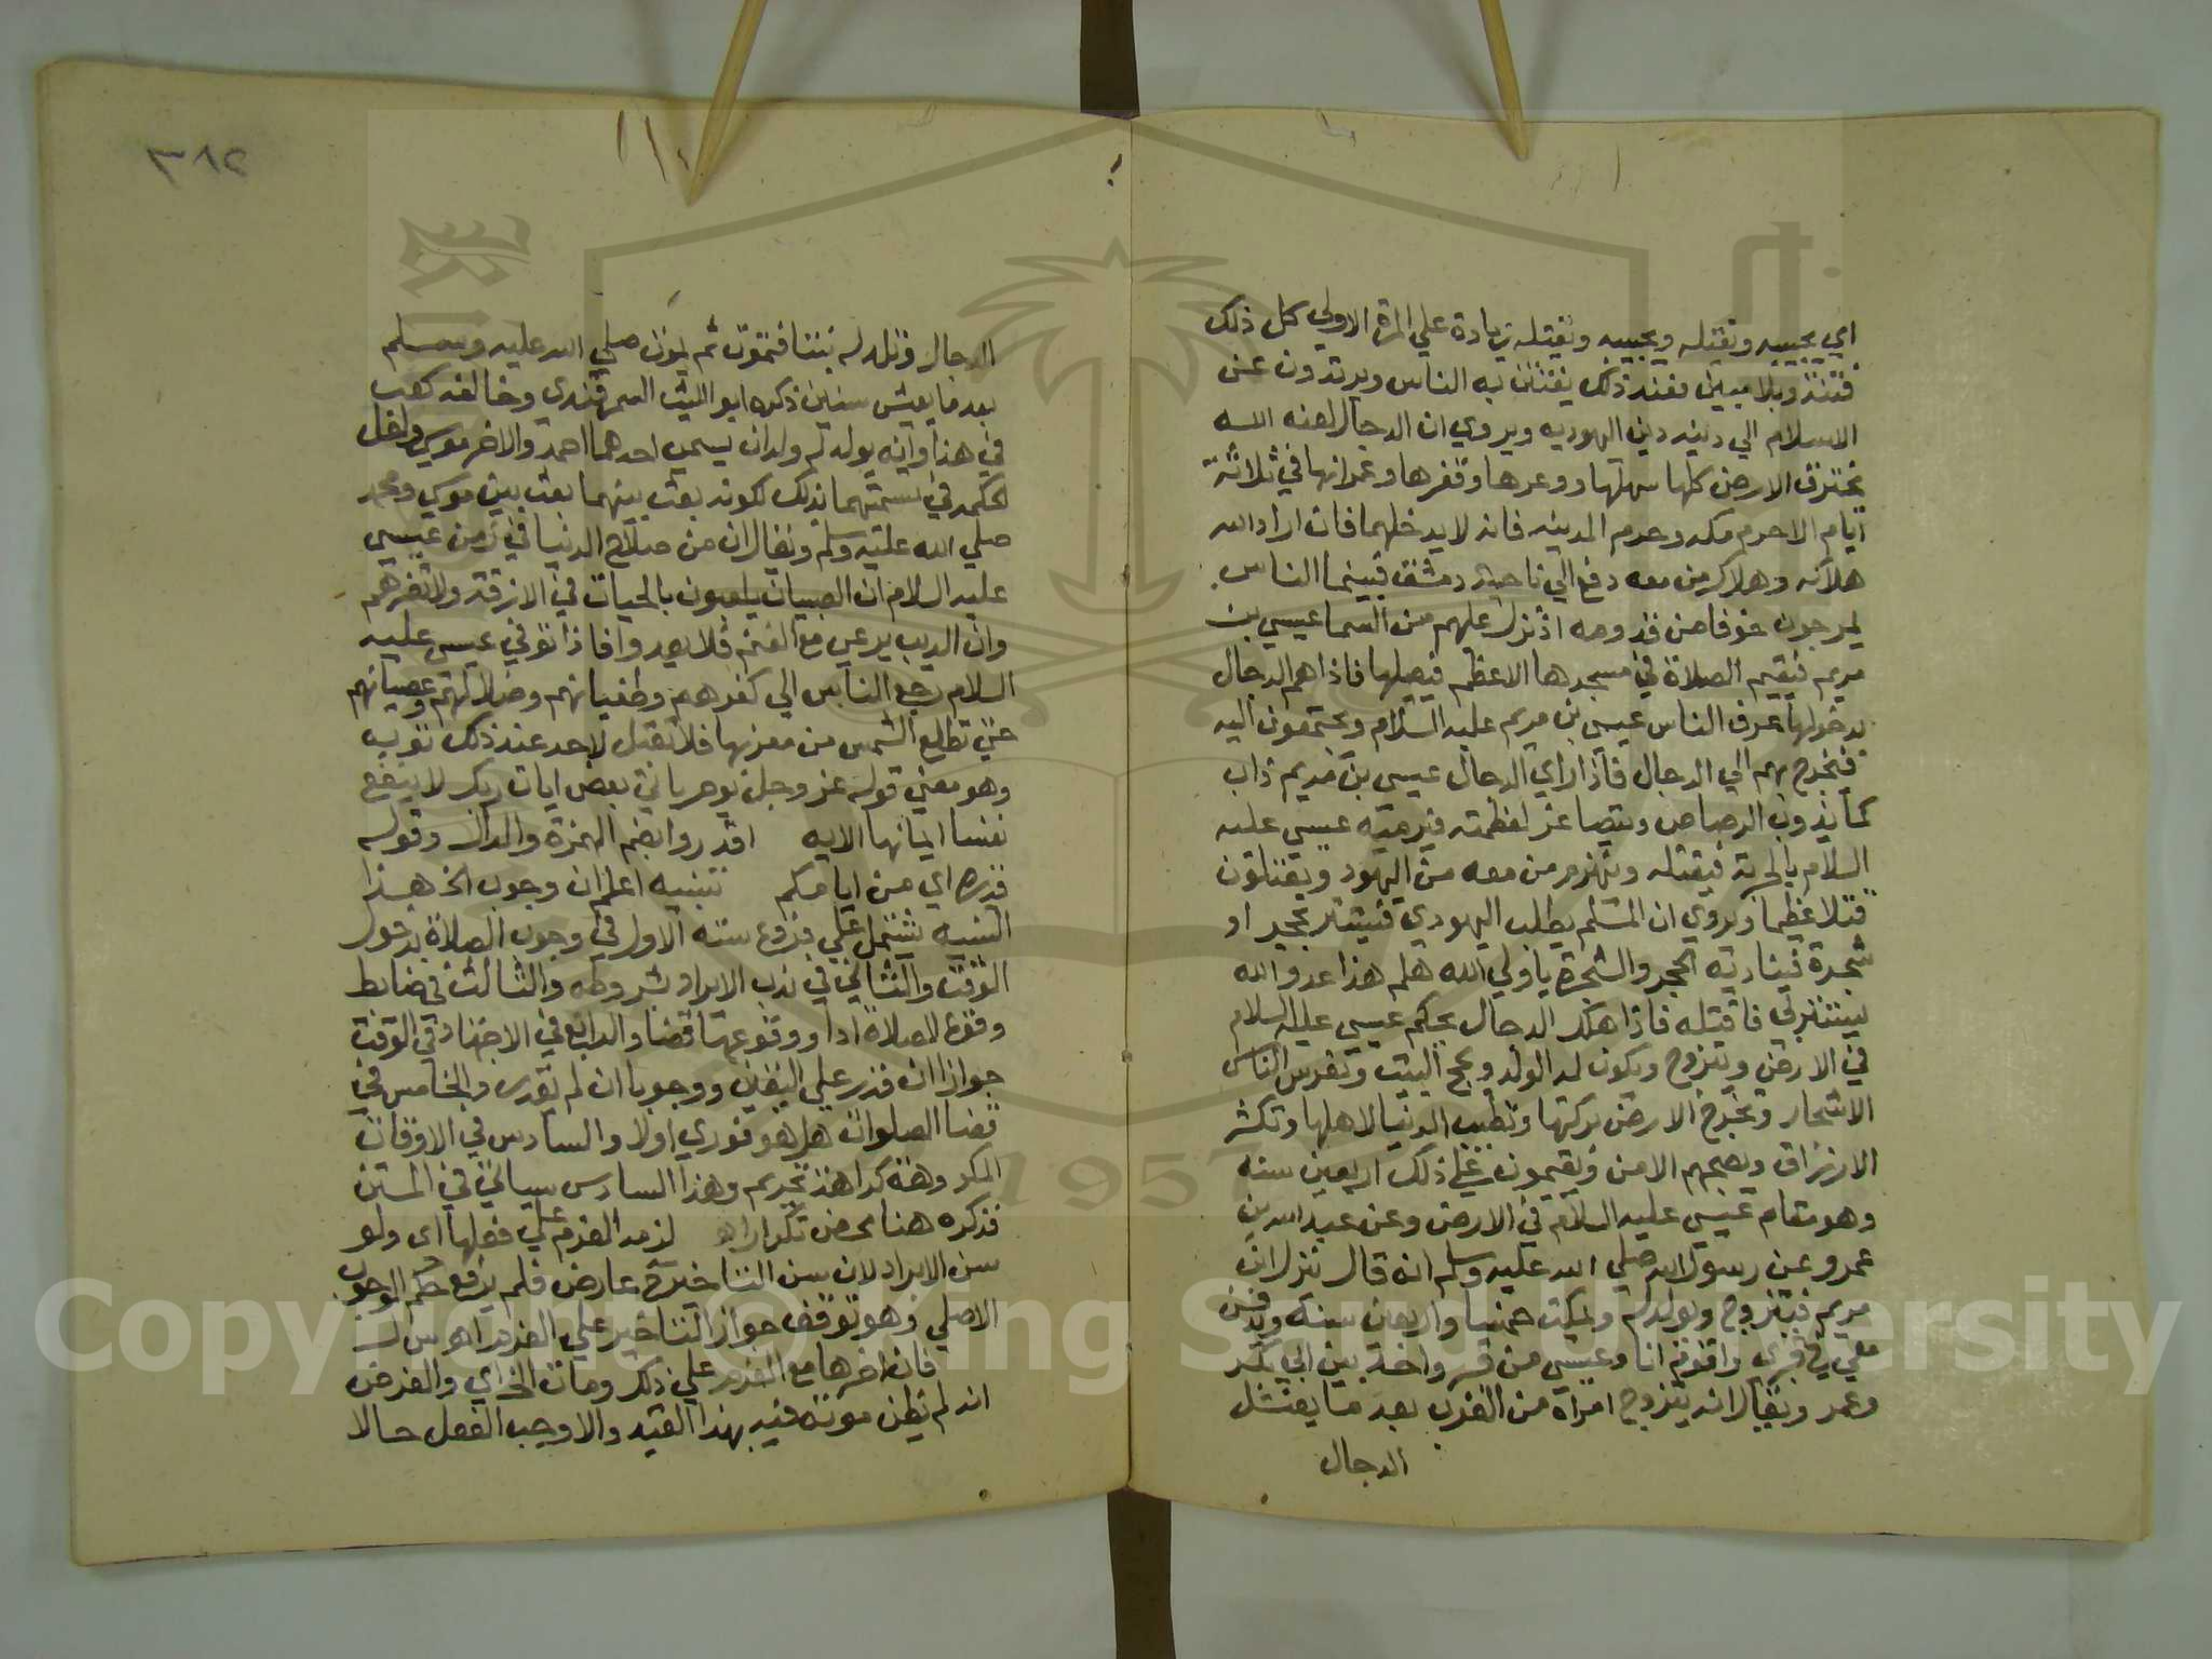 اي يحييه ويقتله ويحييه ويقتله زيادة علي المرة الاولي كل ذلك
فتنة وبلا مبين فعند ذلك يفتتن به الناس ويرتدون عن
الاسلام الي دينه دين اليهوديه ويروي ان الدجال لعنه الله
يخترق الارض كلها سهلها ووعرها وقفرها وعمرانها في ثلاثة
ايام الا حرم مكه وحرم المدينه فانه لا يدخلهما فان اراد الله
هلاكه وهلاك من معه دفع الي ناحية دمشق فبينما الناس
يمرجون خوفا من قدومه اذ نزل عليهم من السما عيسي بن
مريم فيقيم الصلاة في مسجدها الاعظم فيصليها فاذا هم الدجال
بدخولها عرف الناس عيسي بن مريم عليه السلام ويجتمعون اليه
فيخرج بهم الي الدجال فاذا راي الدجال عيسي بن مريم ذاب
كما يذوب الرصاص ويتصاغر لعظمته فيرميه عيسي عليه
السلام بالحربة فيقتله وينهزم من معه من اليهود ويقتلون
قتلا عظيما ويروي ان المسلم يطلب اليهودي فيستتر بحجر او
شجرة فيناديه الحجر والشجرة يا ولي الله هلم هذا عدو الله
يستتر بي فاقتله فاذا هلك الدجال يحكم عيسي عليه السلام
في الارض ويتزوج ويكون له الولد ويحج البيت وتغرس الناس
الاشجار وتخرج الارض بركتها وتطيب الدنيا لاهلها وتكثر
الارزاق ويعمهم الامن ويقيمون علي ذلك اربعين سنه
وهو مقام عيسي عليه السلام في الارض وعن عبد الله بن
عمرو عن رسول الله صلي الله عليه وسلم انه قال ينزل ابن
مريم فيتزوج ويولد له ويمكث خمسا واربعين سنة ويدفن
معي في قبري واقوم انا وعيسي من قبر واحد بين ابي بكر
وعمر ويقال انه يتزوج امراة من العرب بعد ما يقتل
الدجال
٣٨٢
الدجال وتلد له بنتا فتموت ثم يموت صلي الله عليه وسلم
بعد ما يعيش سنين ذكره ابو الليث السمرقندي وخالفه كعب
في هذا وانه يولد له ولدان يسمي احدهما احمد والاخر موسي ولعل
الحكمه في تسميتهما بذلك لكونه بعث بينهما بعث بين موسي ومحمد
صلي الله عليه وسلم ويقال ان من صلاح الدنيا في زمن عيسي
عليه السلام ان الصبيان يلعبون بالحيات في الازقة ولا تضرهم
وان الديب يرعي مع الغنم فلا يعدوا فاذا توفي عيسي عليه
السلام رجع الناس الي كفرهم وطغيانهم وضلالتهم وعصيانهم
حتي تطلع الشمس من مغربها فلا تقبل لاحد عند ذلك توبه
وهو معني قوله عز وجل يوم ياتي بعض ايات ربك لا ينفع
نفسا ايمانها الايه اقدروا بضم الهمزة والدال وقوله
قدره اي من ايامكم تنبيه اعلم ان وجوب الخ هذا
التنبيه يشتمل علي فروع سته الاول في وجوب الصلاة بدخول
الوقت والثاني في ندب الابراد بشروطه والثالث في ضابط
وقوع الصلاة ادا ووقوعها قضا والرابع في الاجتهاد في الوقت
جوازا ان قدر علي اليقين ووجوبا ان لم يقدر والخامس في
قضا الصلوات هل هو فوري اولا والسادس في الاوقات
المكروهه كراهة تحريم وهذا السادس سياتي في المتن
فذكره هنا محض تكرار اه لزمه العزم علي فعلها اي ولو
سن الابراد لان سن التاخير عارض فلم يرفع حكم الوجوب
الاصلي وهو توقف جواز التاخير علي العزم اه م ر
فان اخرها مع العزم علي ذلك ومات الخ اي والفرض
انه لم يظن موته فيه بهذا القيد والا وجب الفعل حالا